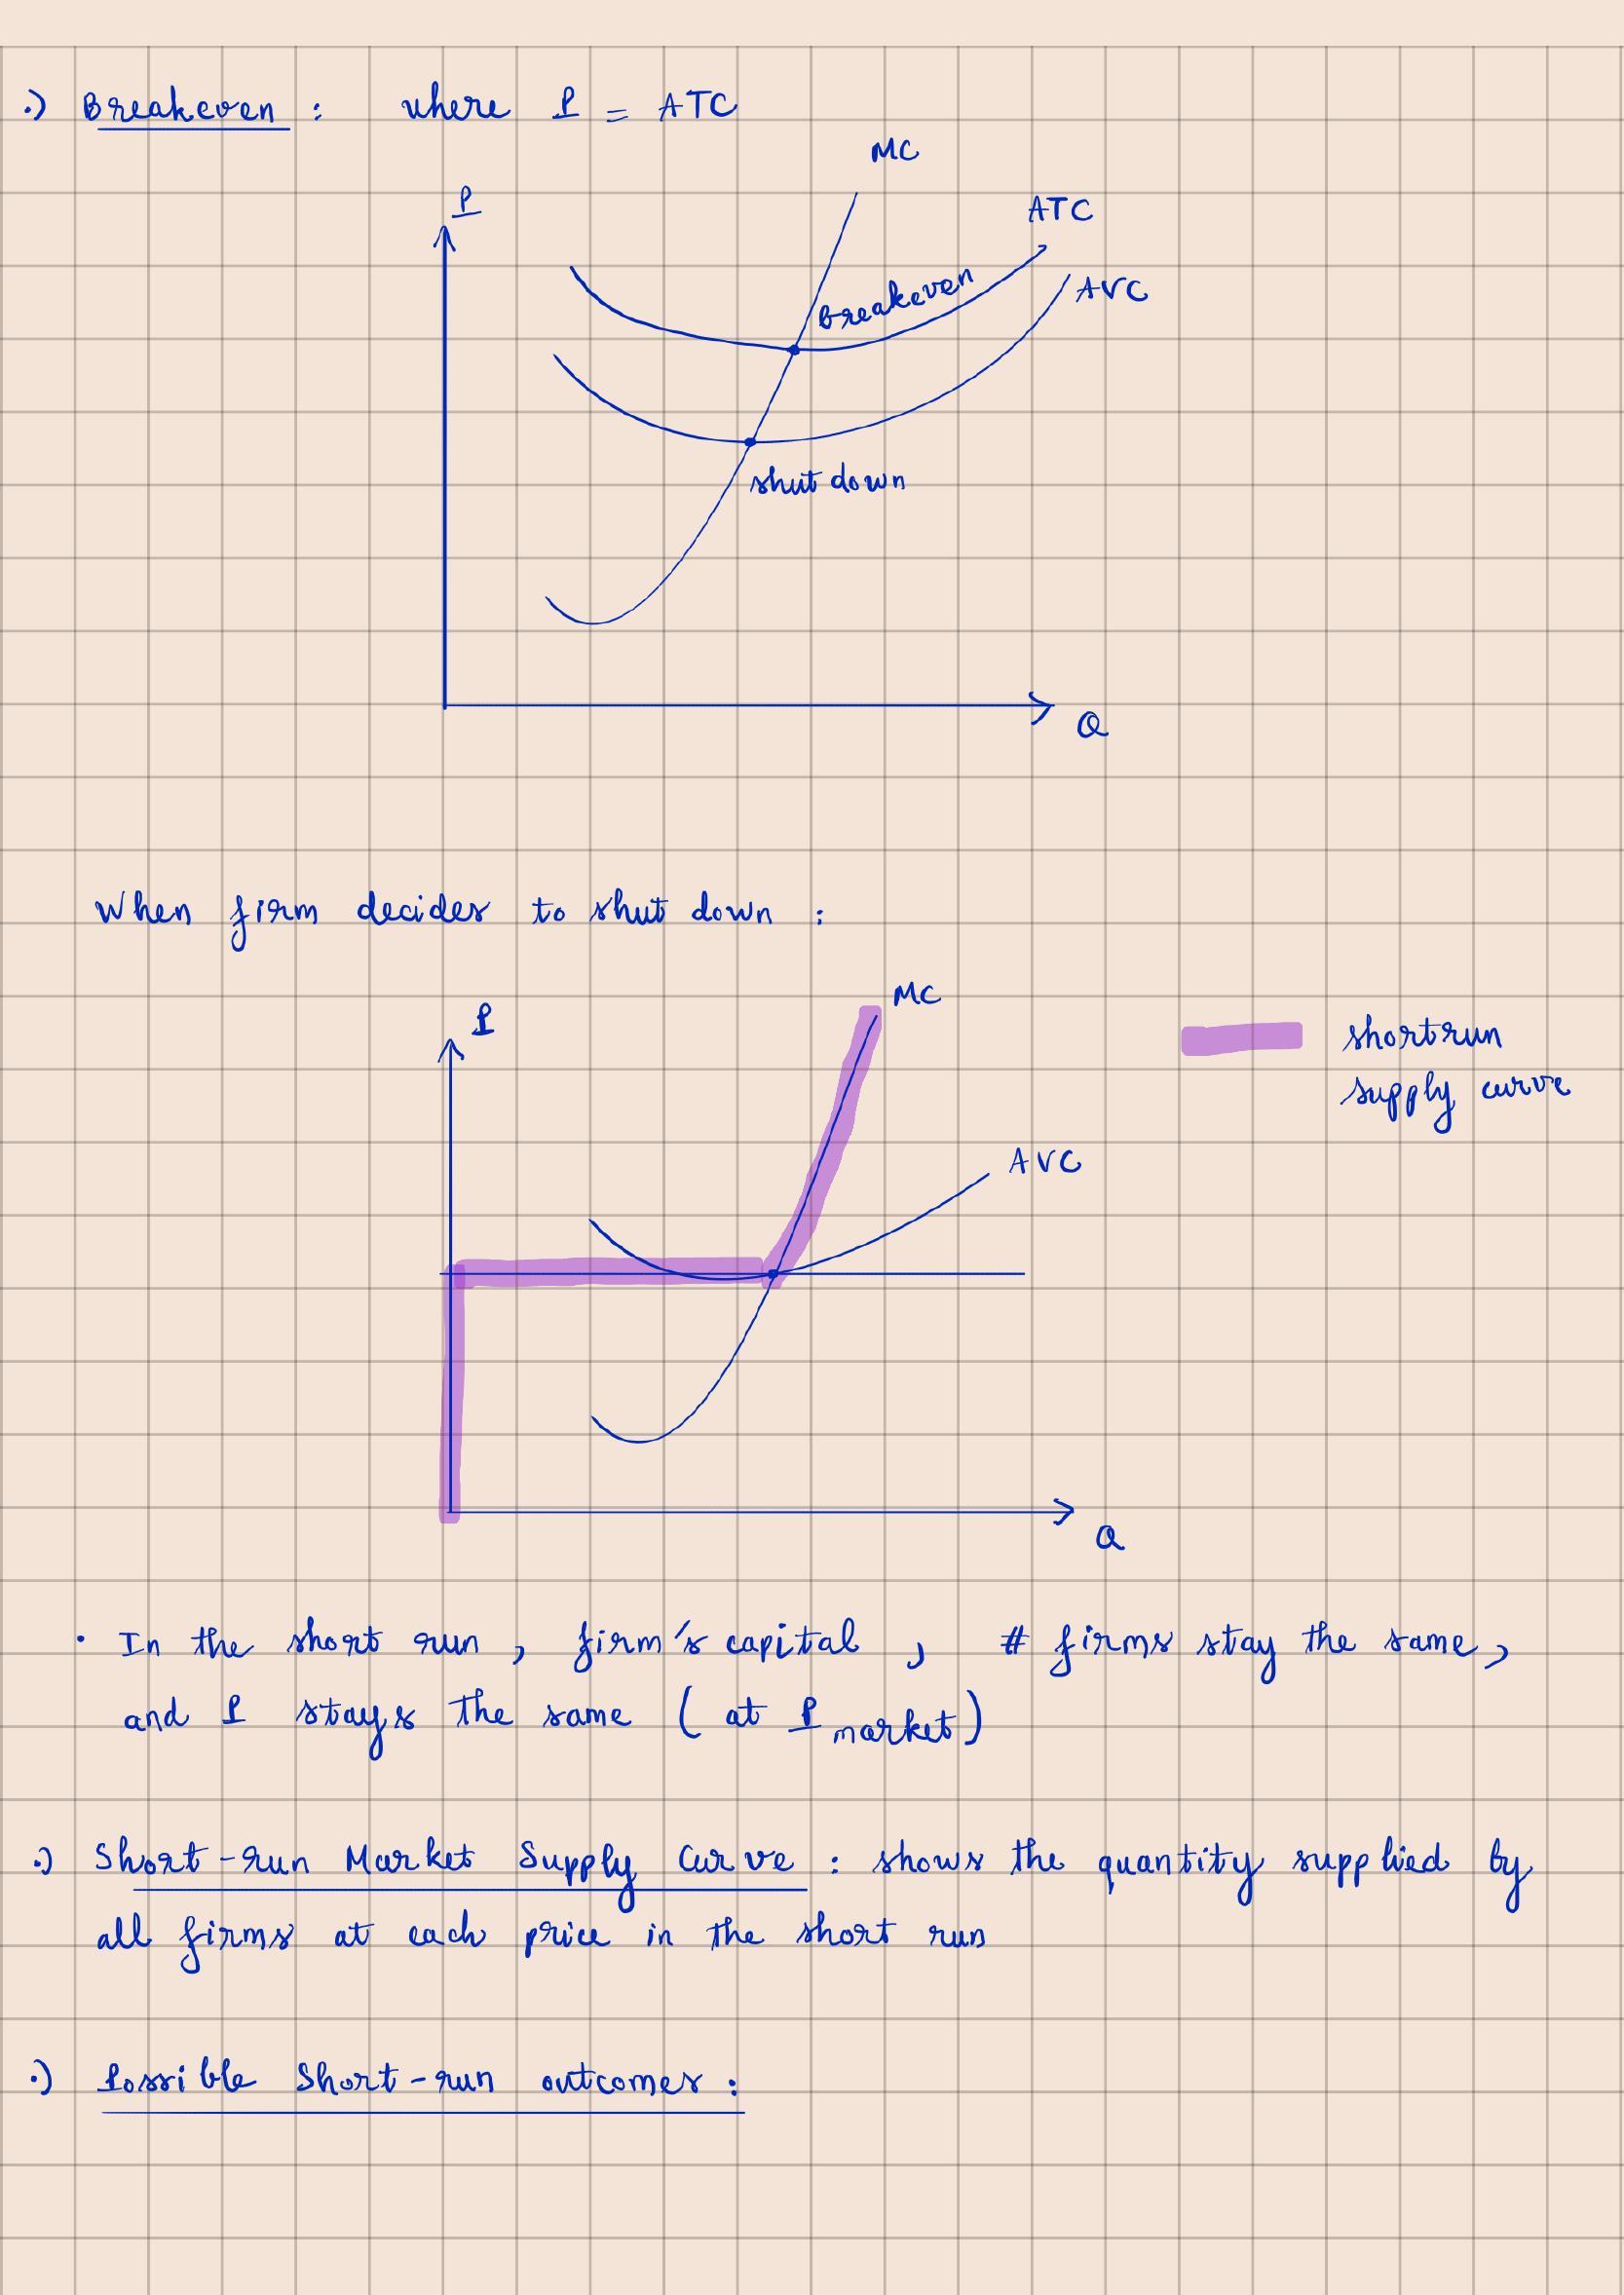 •) Breakeven : where P = ATC
MC
P
ATC
AVC
Breakeven
shut down
Q
When firm decides to shut down :
MC
P
shortrun
supply curve
AVC
Q
• In the short run , firm's capital , # firms stay the same ,
and P stays the same ( at P market )
•) Short-run Market Supply Curve : shows the quantity supplied by
all firms at each price in the short run
•) Possible Short-run outcomes :